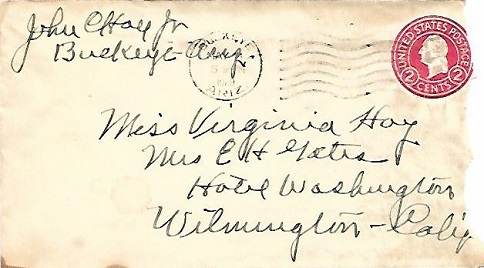 John C Hoy Jr
Buckeye Ariz
BUCKEYE
ARIZ.
UNITED STATES POSTAGE
2 CENTS 2
Miss Virginia Hoy
Mrs E H Gates
Hotel Washington
Wilmington - Calif